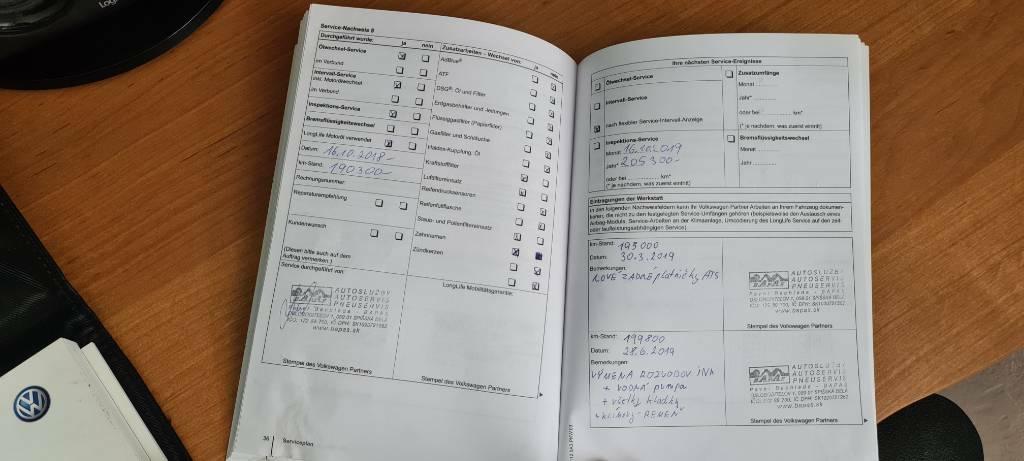 Service-Nachweis 8
Durchgeführt wurde:
ja
nein
Ölwechsel-Service
im Verbund
Intervall-Service
inkl. Motorölwechsel
im Verbund
Inspektions-Service
Bremsflüssigkeitswechsel
LongLife Motoröl verwendet
Datum: 16.10.2018-
km-Stand: 190300-
Rechnungsnummer:
Reparaturempfehlung
Kundenwunsch
(Diesen bitte auch auf dem
Auftrag vermerken.)
Service durchgeführt von:
AUTOSLUŽBY
AUTOSERVIS
PNEUSERVIS
www.bapas.sk
Stempel des Volkswagen Partners
Zusatzarbeiten – Wechsel von:
ja
nein
AdBlue®
ATF
DSG®: Öl und Filter
Erdgasbehälter und -leitungen
Flüssiggasfilter (Papierfilter)
Gasfilter und Schläuche
Haldex-Kupplung: Öl
Kraftstofffilter
Luftfiltereinsatz
Reifendrucksensoren
Reifenfüllflasche
Staub- und Pollenfiltereinsatz
Zahnriemen
Zündkerzen
LongLife Mobilitätsgarantie:
Stempel des Volkswagen Partners
36
Serviceplan
Ihre nächsten Service-Ereignisse
Ölwechsel-Service
Intervall-Service
nach flexibler Service-Intervall-Anzeige
Inspektions-Service
Monat 16.10.2019
Jahr 205300-
oder bei .............. km*
(* je nachdem, was zuerst eintritt)
Zusatzumfänge
Monat ............
Jahr* ............
oder bei .............. km*
(* je nachdem, was zuerst eintritt)
Bremsflüssigkeitswechsel
Monat ............
Jahr ............
Eintragungen der Werkstatt
In den folgenden Nachweisfeldern kann Ihr Volkswagen Partner Arbeiten an Ihrem Fahrzeug dokumen-
tieren, die nicht zu den festgelegten Service-Umfängen gehören (beispielsweise den Austausch eines
Airbag-Moduls, Service-Arbeiten an der Klimaanlage, Umcodierung des LongLife Service auf den zeit-
oder laufleistungsabhängigen Service).
km-Stand: 195000
Datum: 30.3.2019
Bemerkungen:
NOVÉ ZADNÉ platničky ATS
AUTOSLUŽBY
AUTOSERVIS
PNEUSERVIS
Pavol Dechleda - BAPAS
www.bapas.sk
Stempel des Volkswagen Partners
km-Stand: 199800
Datum: 28.6.2019
Bemerkungen:
VÝMENA ROZVODOV INA
+ VODNÁ pumpa
+ všetky kladky
+ klinový REMEŇ
AUTOSLUŽBY
AUTOSERVIS
PNEUSERVIS
Pavol Dechleda - BAPAS
www.bapas.sk
Stempel des Volkswagen Partners